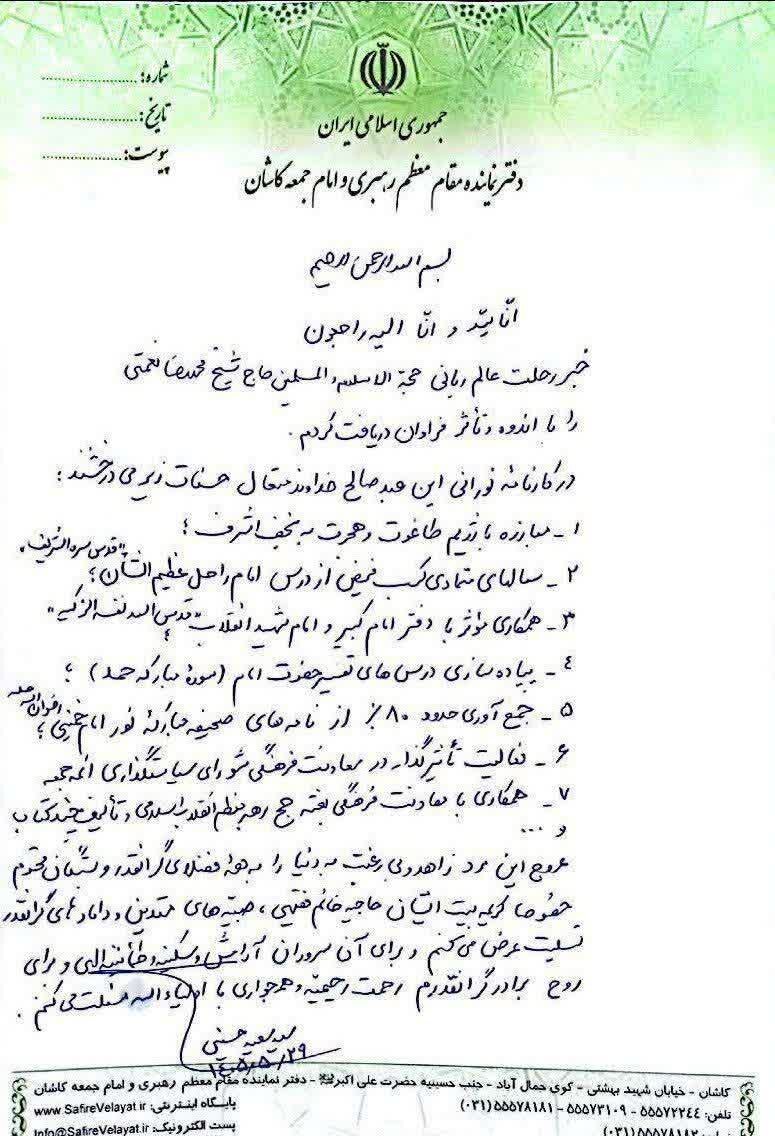 جمهوری اسلامی ایران
دفتر نماینده مقام معظم رهبری و امام جمعه کاشان
شماره:
تاریخ:
پیوست:
بسم الله الرحمن الرحیم
انّا للّه و انّا الیه راجعون
خبر رحلت عالم ربانی حجة الاسلام و المسلمین حاج شیخ محمدرضا نعمتی
را با اندوه و تأثر فراوان دریافت کردم.
در کارنامه نورانی این عبد صالح خداوند متعال حسنات زیر می درخشند:
۱- مبارزه با رژیم طاغوت و هجرت به نجف اشرف؛
۲- سالهای متمادی کسب فیض از درس امام راحل عظیم الشأن "قدس سره الشریف"؛
۳- همکاری مؤثر با دفتر امام کبیر و امام شهید انقلاب "قدس الله نفسه الزکیه"؛
۴- پیاده سازی درس های تفسیر حضرت امام (سورهٔ مبارکه حمد)؛
۵- جمع آوری حدود ۸۰٪ از نامه های صحیفه مبارکهٔ نور امام خمینی؛
۶- فعالیت تأثیرگذار در معاونت فرهنگی شورای سیاستگذاری ائمه جمعه
۷- همکاری با معاونت فرهنگی بعثه حج رهبر معظم انقلاب اسلامی و تألیف چند کتاب
و ...
عروج این مرد زاهد و بی رغبت به دنیا را به همهٔ فضلای گرانقدر و بستگان محترم
خصوصا کریمه بیت ایشان حاجیه خانم فقیهی، صبیّه های متدین و دامادهای گرانقدر
تسلیت عرض می کنم و برای آن سروران آرامش و سکینه و طمأنینه الهی و برای
روح برادر گرانقدرم رحمت رحیمیّه و همجواری با اولیاء الله مسئلت می کنم.
سید سعید حسینی
۱۴۰۵/۵/۲۹
کاشان - خیابان شهید بهشتی - کوی جمال آباد - جنب حسینیه حضرت علی اکبر - دفتر نماینده مقام معظم رهبری و امام جمعه کاشان
تلفن: ۵۵۵۷۲۲۴۴ - ۵۵۵۷۳۱۰۹ - ۵۵۵۷۸۱۸۱ (۰۳۱)
پایگاه اینترنتی: www.SafireVelayat.ir
۵۵۵۷۸۱۸۲ (۰۳۱)
پست الکترونیک: Info@SafireVelayat.ir